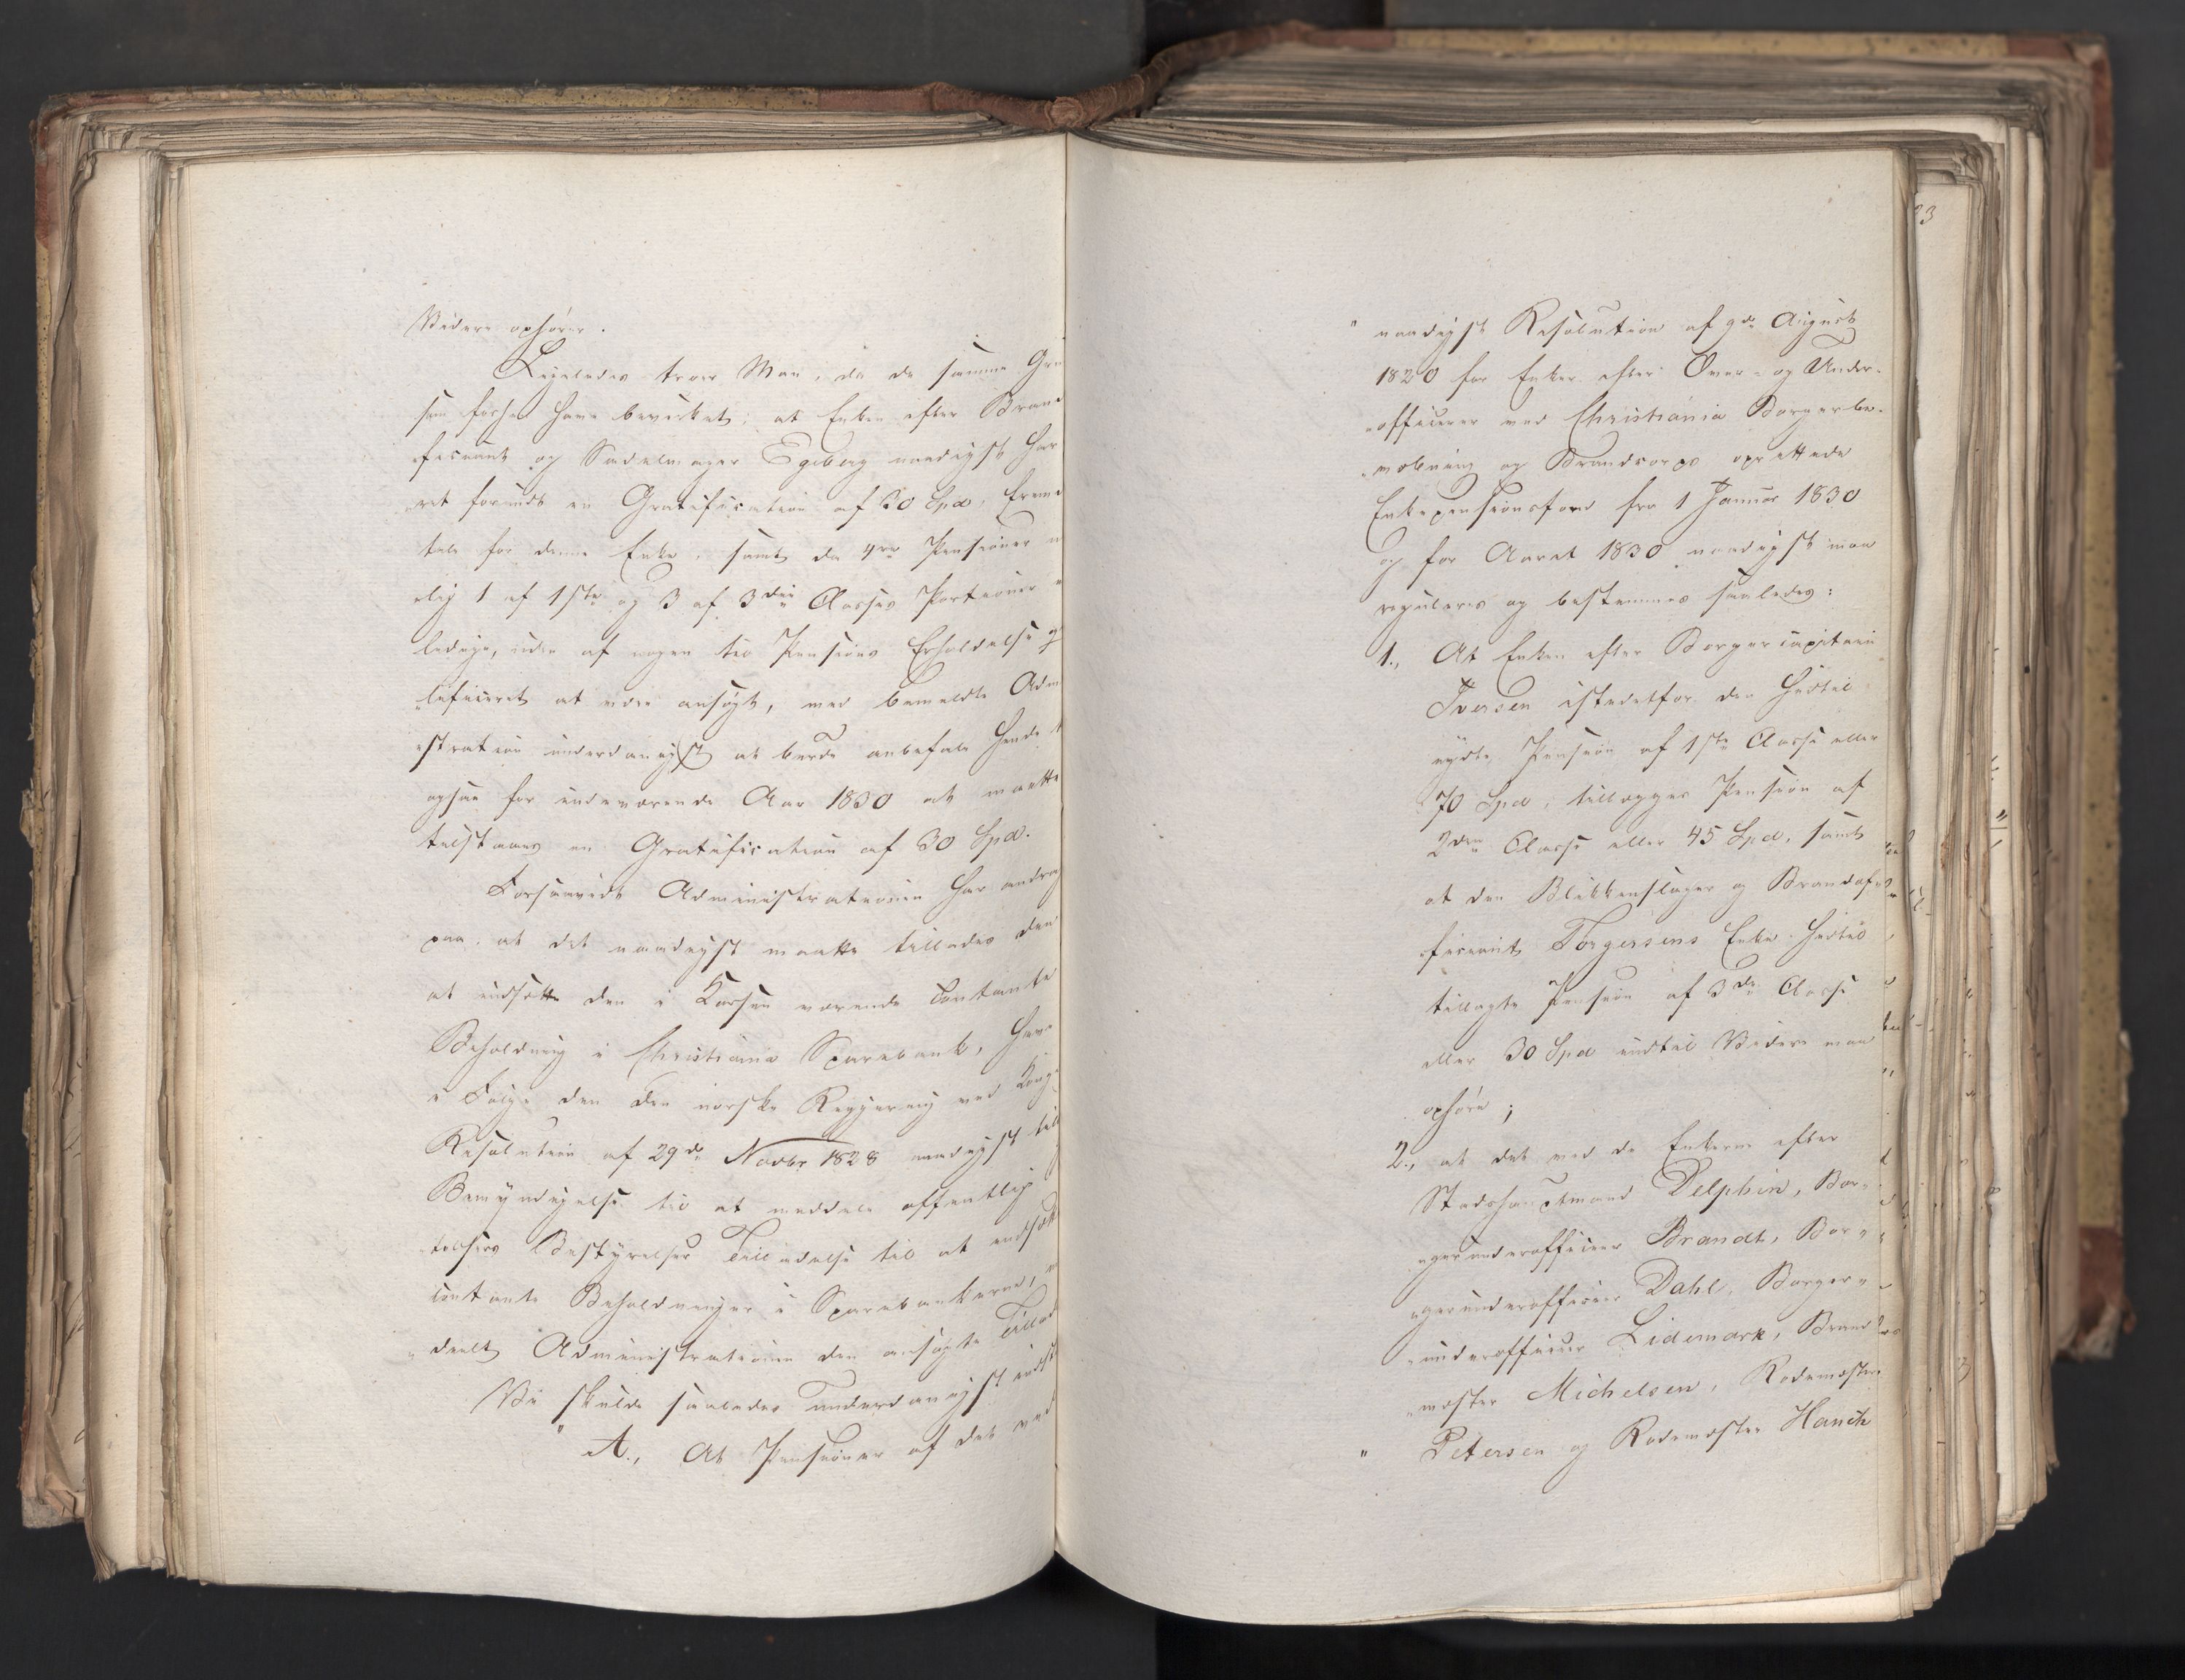 Videre ophører.
Ligeledes troer Man, da de samme Gru
som forhen have bevirket, at Enken efter Brand
ficiant og Sadelmager Egeberg naadigst har
ret forundt en Gratification af 30 Spd,
tale for denne Enke, samt da 4re Pensioner
lig 1 af 1ste og 3 af 3die Classes Portioner
ledige, uden af nogen til Pensions Erholdelse q
lificeret at være ansøgt, med bemeldte Adm
stration underdanigst at burde anbefale hende
ogsaa for indeværende Aar 1830 at maatte
tilstaaes en Gratification af 30 Spd.
Forsaavidt Administrationen har andra
paa, at det naadigst maatte tillades den
at indsætte den i Kassen værende Contante
Beholdning i Christiania Sparebank, have
i Følge den den norske Regjering ved Kongl
Resolution af 29de Novbr 1828 naadigst til
Bemyndigelse til at meddele offentlig
telsers Bestyrelser Tilladelse til at indsætt
contante Beholdninger i Sparebankerne,
„deelt Administrationen den ansøgte Tillad
Vi skulde saaledes underdanigst indst
" A., At Pensioner af det ved
" naadigst Resolution af 9de August
1820 for Enker efter Over- og Under-
„officierer ved Christiania Borgerbe-
„væbning og Brandcorps oprettede
Enkepensionsfond fra 1 Januar 1830
og for Aaret 1830 naadigst maa
reguleres og bestemmes saaledes:
1., At Enken efter Borgercapitain
Iversen istedetfor den hidtil
nydte Pension af 1ste Classe eller
70 Spd, tillægges Pension af
2den Classe eller 45 Spd, samt
at den Blikkenslager og Brandof-
ficiant Torgersens Enke hidtil
tillagte Pension af 3die Classe
eller 30 Spd indtil Videre maa
ophøre;
2., at det med de Enkerne efter
Stadshauptmand Delphin, Bor-
„gerunderofficeer Brandt, Bor-
„gerunderofficeer Dahl, Borger-
„underofficeer Lidemark, Brand
„mester Michelsen, Rodemester
" Petersen og Rodemester Hanch